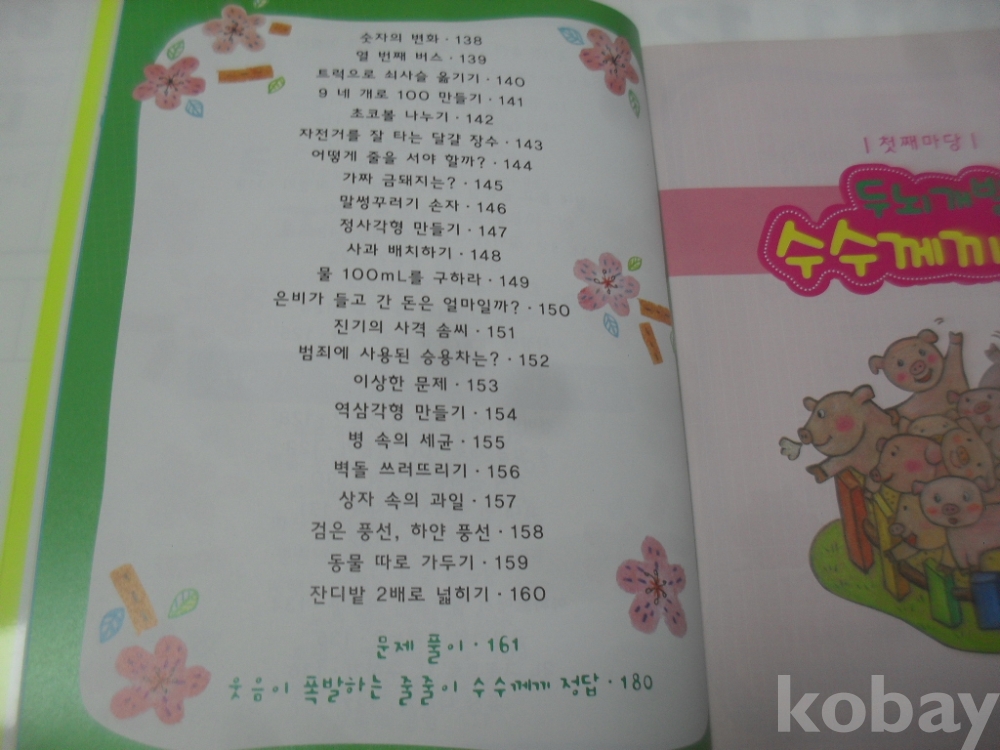 숫자의 변화 · 138
열 번째 버스 · 139
트럭으로 쇠사슬 옮기기 · 140
9 네 개로 100 만들기 · 141
초코볼 나누기 · 142
자전거를 잘 타는 달걀 장수 · 143
어떻게 줄을 서야 할까? · 144
가짜 금돼지는? · 145
말썽꾸러기 손자 · 146
정사각형 만들기 · 147
사과 배치하기 · 148
물 100mL를 구하라 · 149
은비가 들고 간 돈은 얼마일까? · 150
진기의 사격 솜씨 · 151
범죄에 사용된 승용차는? · 152
이상한 문제 · 153
역삼각형 만들기 · 154
병 속의 세균 · 155
벽돌 쓰러뜨리기 · 156
상자 속의 과일 · 157
검은 풍선, 하얀 풍선 · 158
동물 따로 가두기 · 159
잔디밭 2배로 넓히기 · 160
문제 풀이 · 161
웃음이 폭발하는 줄줄이 수수께끼 정답 · 180
| 첫째마당 |
두뇌개발
수수께끼
kobay